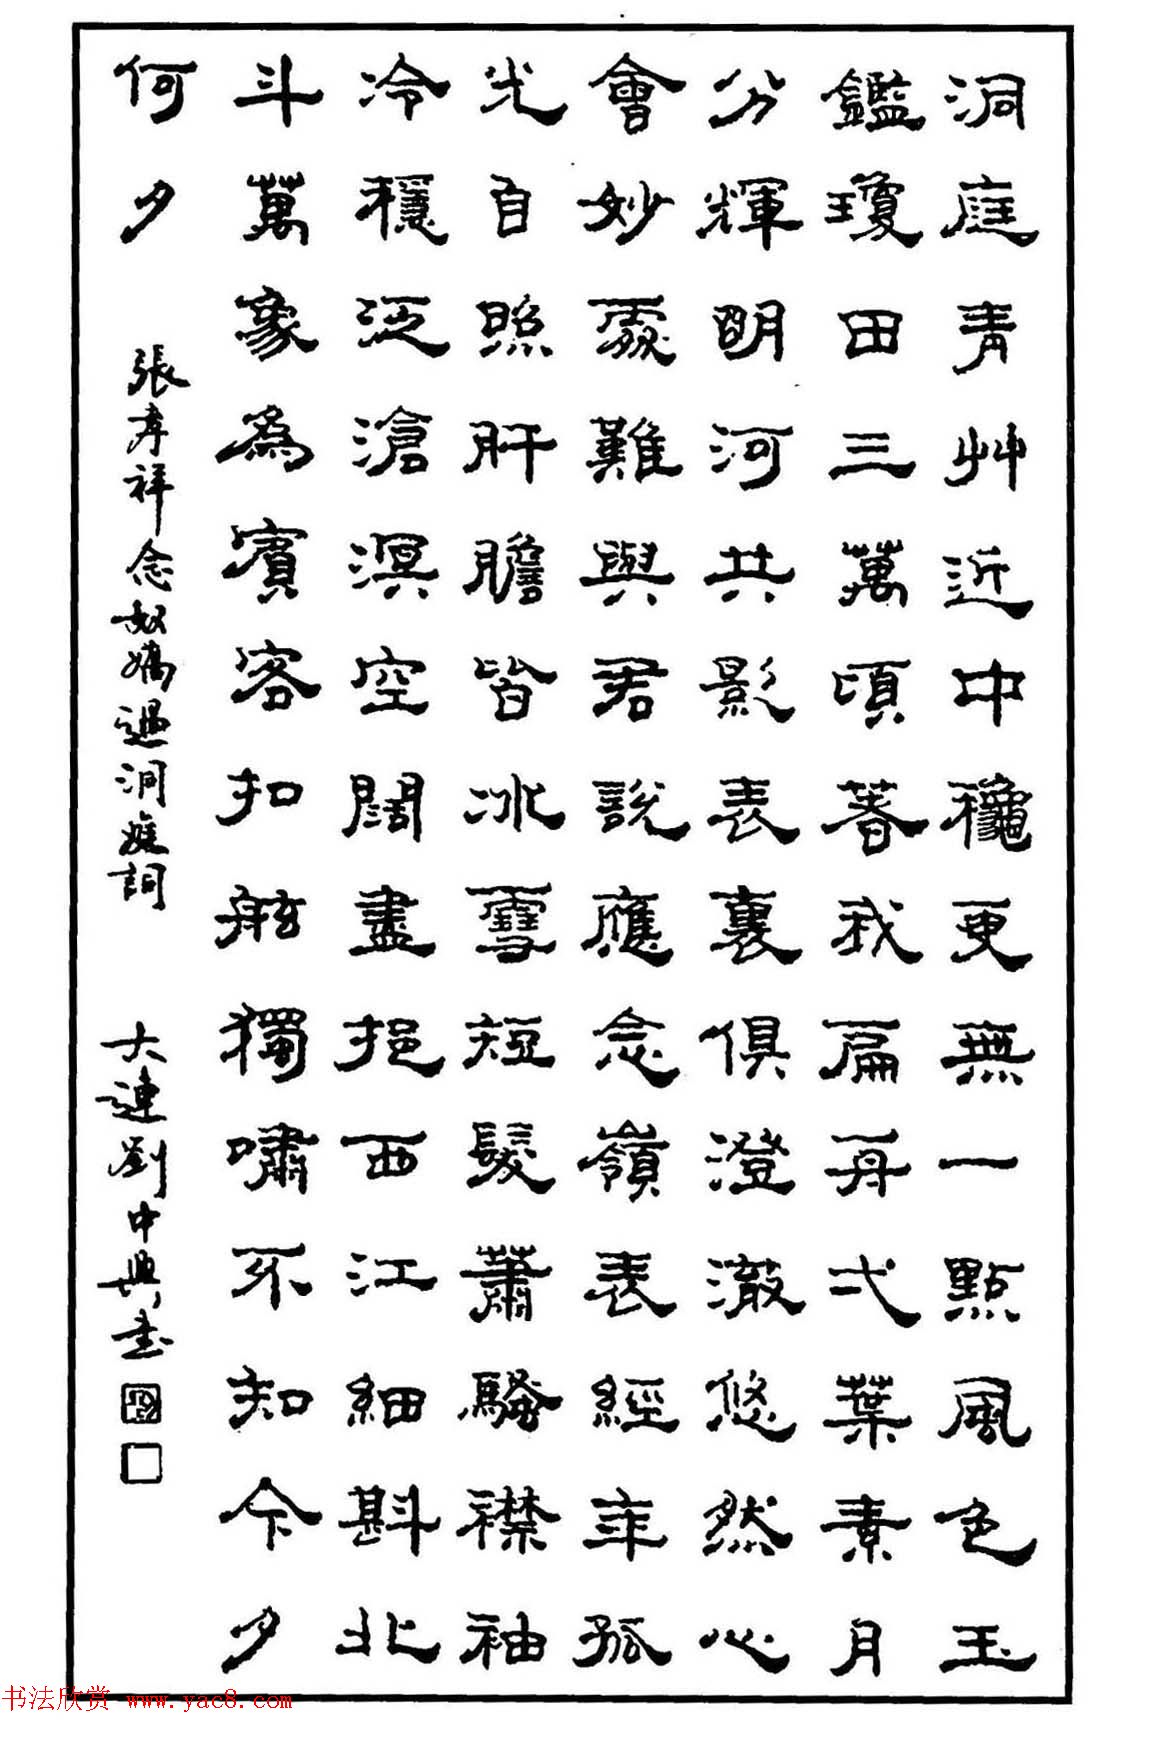 洞庭青艸近中龝更無一點風色玉
鑑瓊田三萬頃著我扁舟弌葉素月
分輝明河共影表裏俱澄澈悠然心
會妙處難與君說應念嶺表經年孤
光自照肝膽皆冰雪短髮蕭騷襟袖
冷穩泛滄溟空闊盡挹西江細斟北
斗萬象為賓客扣舷獨嘯不知今夕
何夕
張孝祥念奴嬌過洞庭詞
大連劉中興書
书法欣赏 www.yac8.com